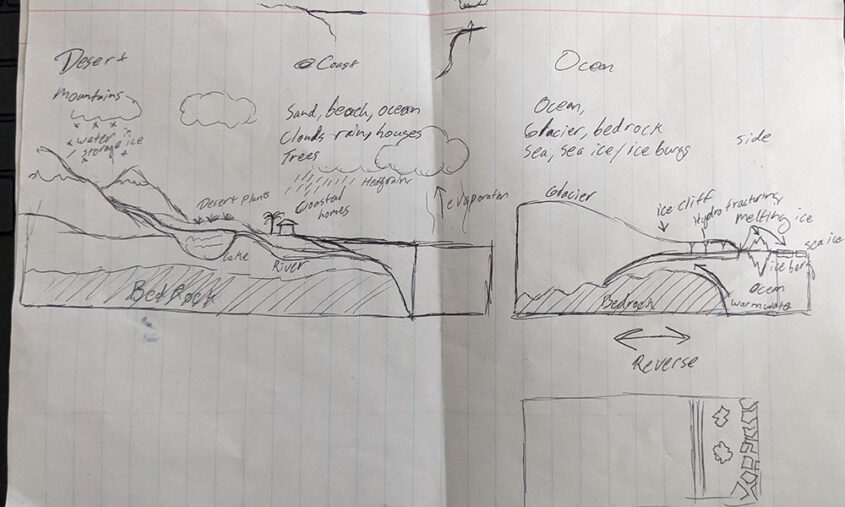 Desert
Mountains
water in
storage ice
Desert plants
Lake
River
BedRock
Coast
Sand, beach, ocean
Clouds rain, houses
Trees
Heavy rain
Coastal
homes
evaporation
Ocean
Ocean,
Glacier, bedrock
Sea, sea ice/ice burgs
side
Glacier
ice cliff
Hydrofracturing
melting ice
sea ice
ice burg
Ocean
warm water
Bedrock
Reverse